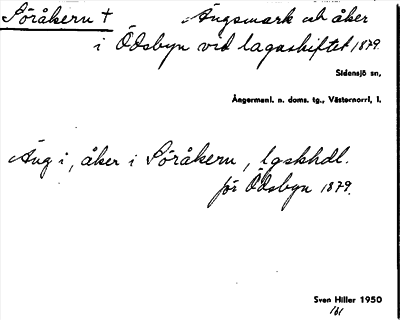 Söråkern + Ängsmark och åker
i Ödsbyn vid lagaskiftet 1879.
Sidensjö sn,
Ångermanl. n. doms. tg., Västernorrl, l.
Äng i, åker i Söråkern, lgskhdl.
för Ödsbyn 1879.
Sven Hiller 1950